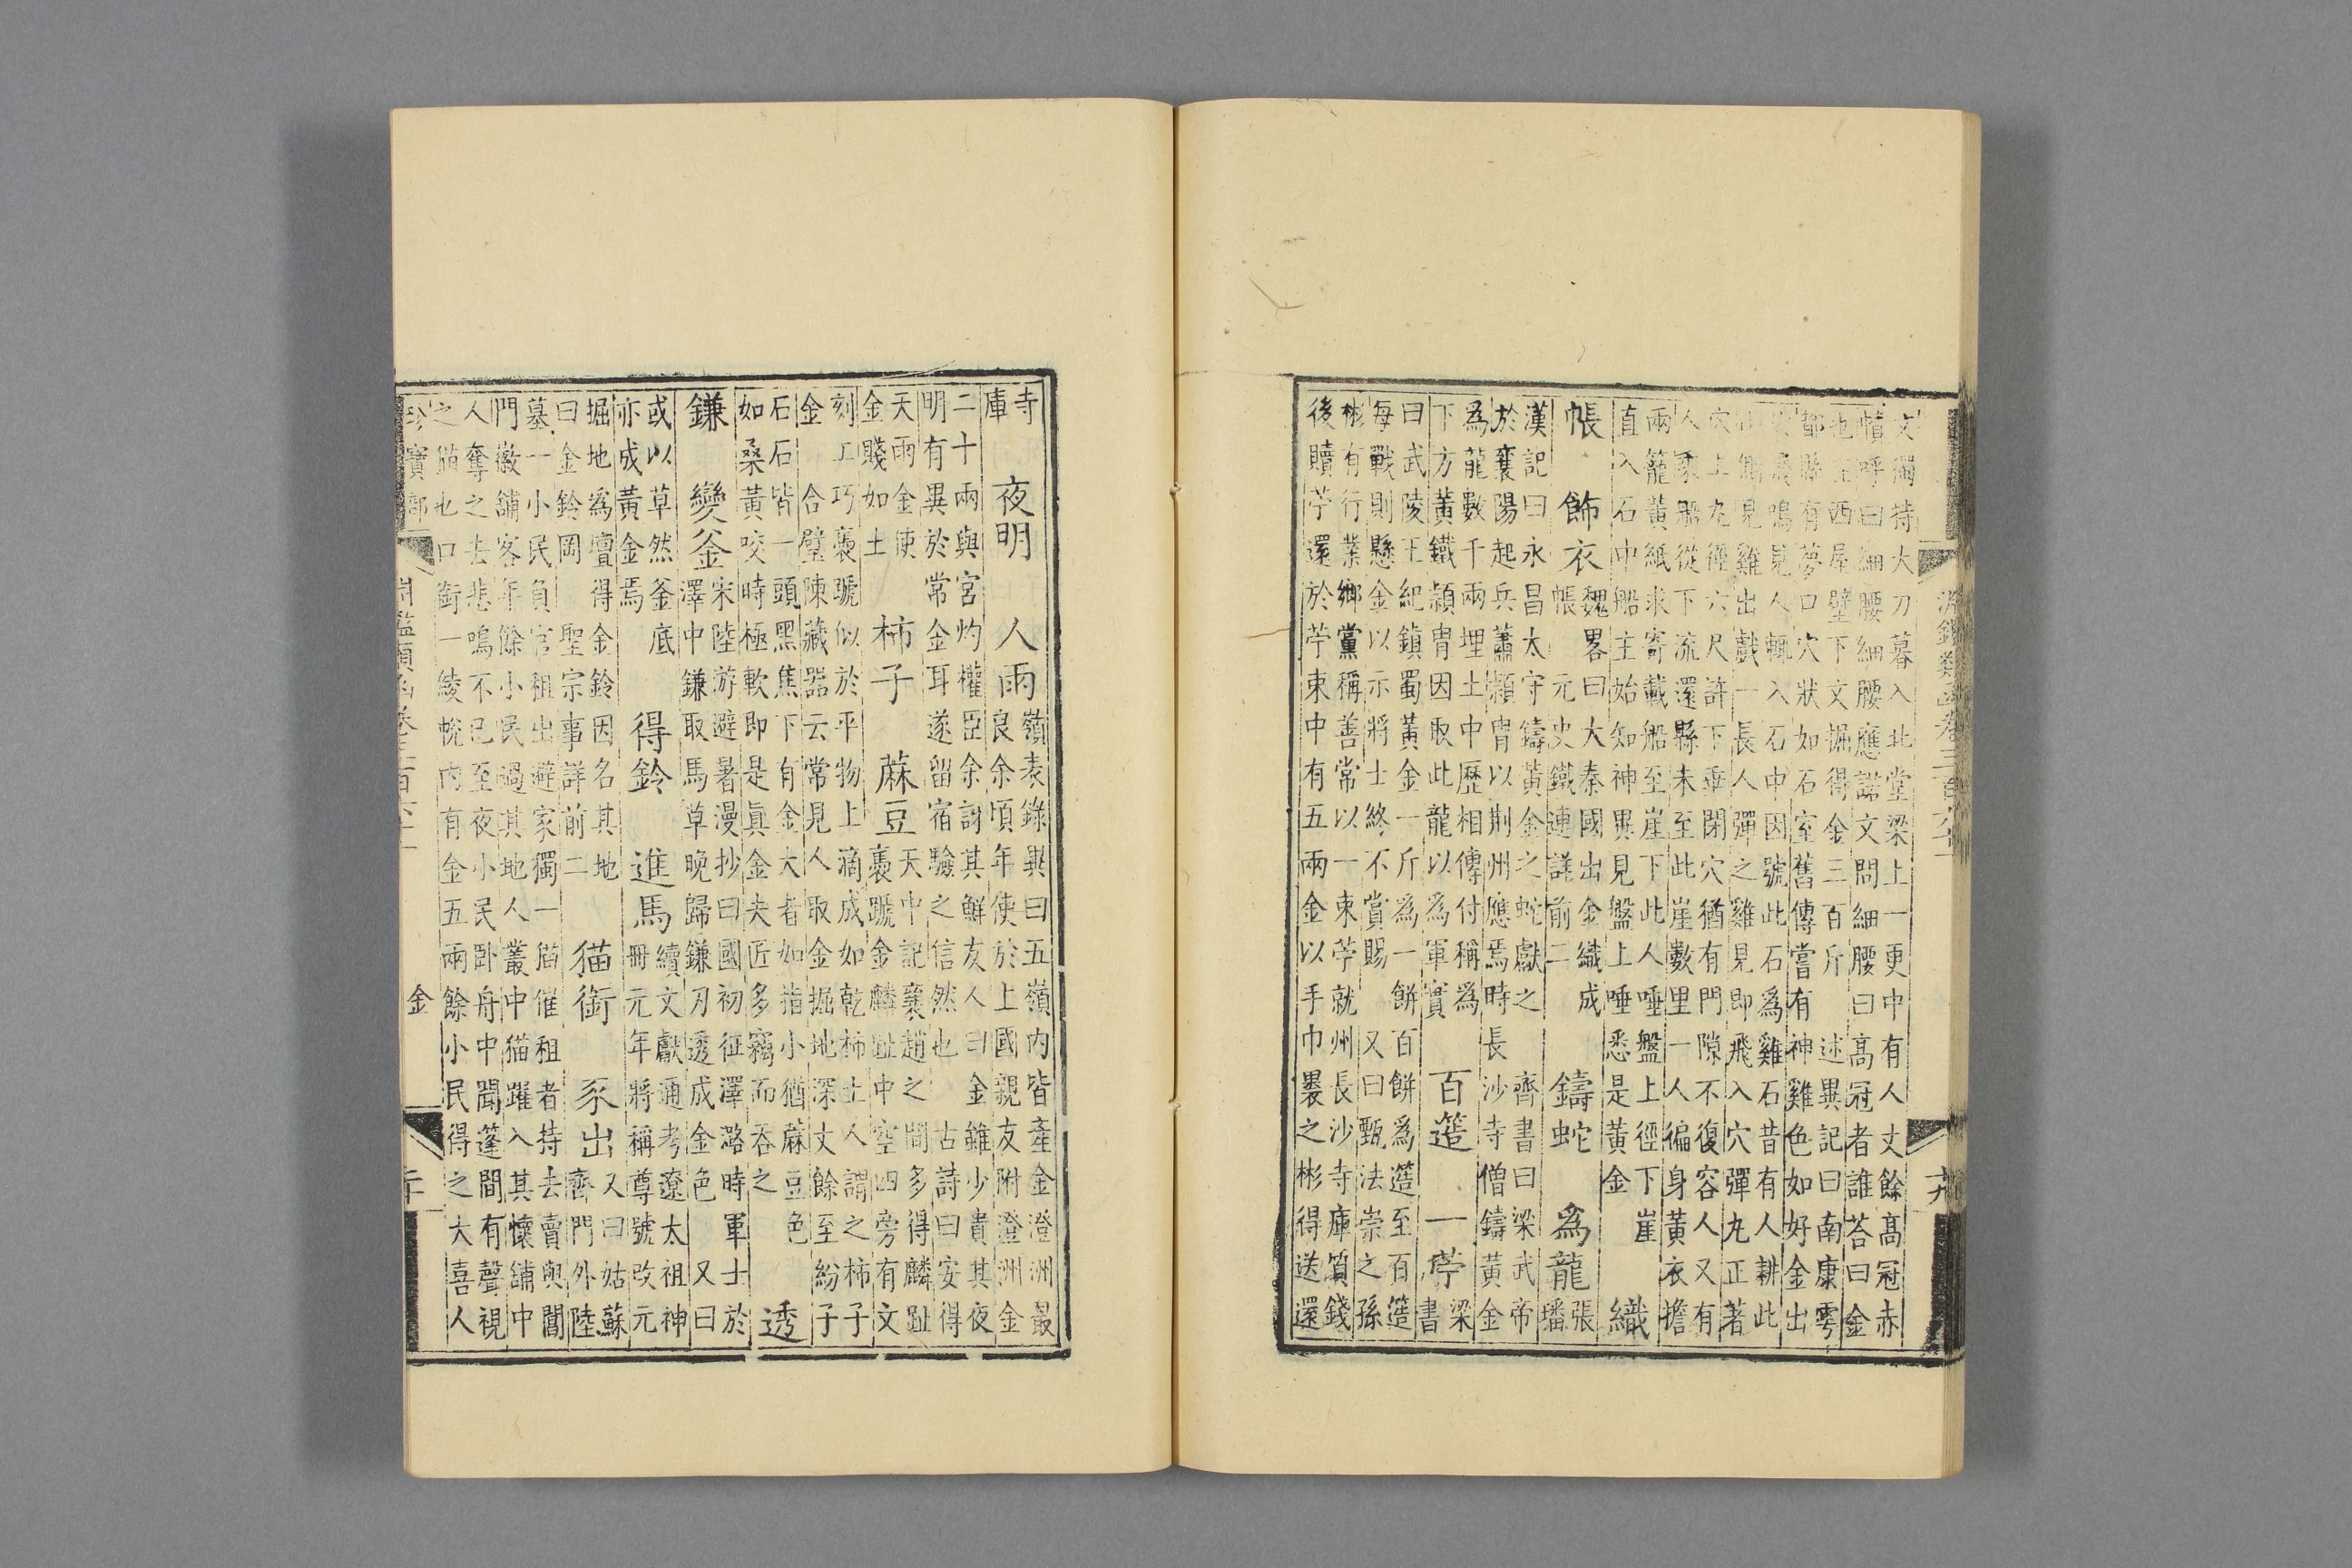 文獨持大刀暮入北堂梁上一更中有人丈餘髙冠赤
幘呼曰細腰細腰應諾文問細腰曰髙冠者誰荅曰金
也在西屋壁下文掘得金三百斤　述異記曰南康雩
都縣有夢口穴狀如石室舊傳嘗有神雞色如好金出
穴飛鳴見人輒入石中因號此石爲雞石昔有人耕此
山側見雞出戲一長人彈之雞見即飛入穴彈丸正著
穴上丸徑六尺許下垂閉穴猶有門隙不復容人又有
人乘船從下流還縣未至此崖數里一人徧身黃衣擔
兩籠黃紙求寄載船至崖下此人唾盤上徑下崖
直入石中船主始知神異見盤上唾悉是黃金
織
帳　飾衣
魏畧曰大秦國出金織成
帳　元史鐵連詳前二
鑄蛇　爲龍
張
璠
漢記曰永昌太守鑄黃金之蛇獻之　齊書曰梁武帝
於襄陽起兵蕭頴冑以荆州應焉時長沙寺僧鑄黃金
爲龍數千兩埋土中歷相傳付稱爲
下方黃鐵頴冑因取此龍以爲軍實
百䈣　一苧
梁
書
曰武陵王紀鎮蜀黃金一斤爲一餅百餅爲䈣至百䈣
每戰則懸金以示將士終不賞賜　又曰甄法崇之孫
彬有行業鄉黨稱善常以一束苧就州長沙寺庫質錢
後贖苧還於苧束中有五兩金以手巾裹之彬得送還
淵鑑類函卷三百六十一
十九
寺
庫
夜明　人雨
嶺表錄異曰五嶺内皆產金澄洲最
良余頃年使於上國親友附澄洲金
二十兩與宮灼權臣余訝其鮮友人曰金雖少貴其夜
明有異於常金耳遂留宿驗之信然也　古詩曰安得
天雨金使
金賤如土
柿子　蔴豆
天中記襄趙之間多得麟趾
褭蹏金麟趾中空四旁有文
刻工巧褭蹏似於平物上滴成如乾柿土人謂之柿子
金　合璧陳藏器云常見人取金掘地深丈餘至紛子
石石皆一頭黑焦下有金大者如指小猶蔴豆色
如桑黃咬時極軟即是眞金夫匠多竊而吞之
透
鎌　變釜
宋陸游避暑漫抄曰國初征澤潞時軍士於
澤中鎌取馬草晚歸鎌刃透成金色　又曰
或以草然釜底
亦成黃金焉
得鈴　進馬
續文獻通考遼太祖神
冊元年將稱尊號改元
掘地爲壇得金鈴因名其地
曰金鈴岡　聖宗事詳前二
猫銜　豕出
又曰姑蘇
齊門外陸
墓一小民負官租出避家獨一猫催租者持去賣與閶
門徽舖客年餘小民過其地人叢中猫躍入其懷舖中
人奪之去悲鳴不已至夜小民卧舟中聞篷間有聲視
之猫也口銜一綾帨内有金五兩餘小民得之大喜人
珍寶部　淵鑑類函卷三百六十一　金　二十